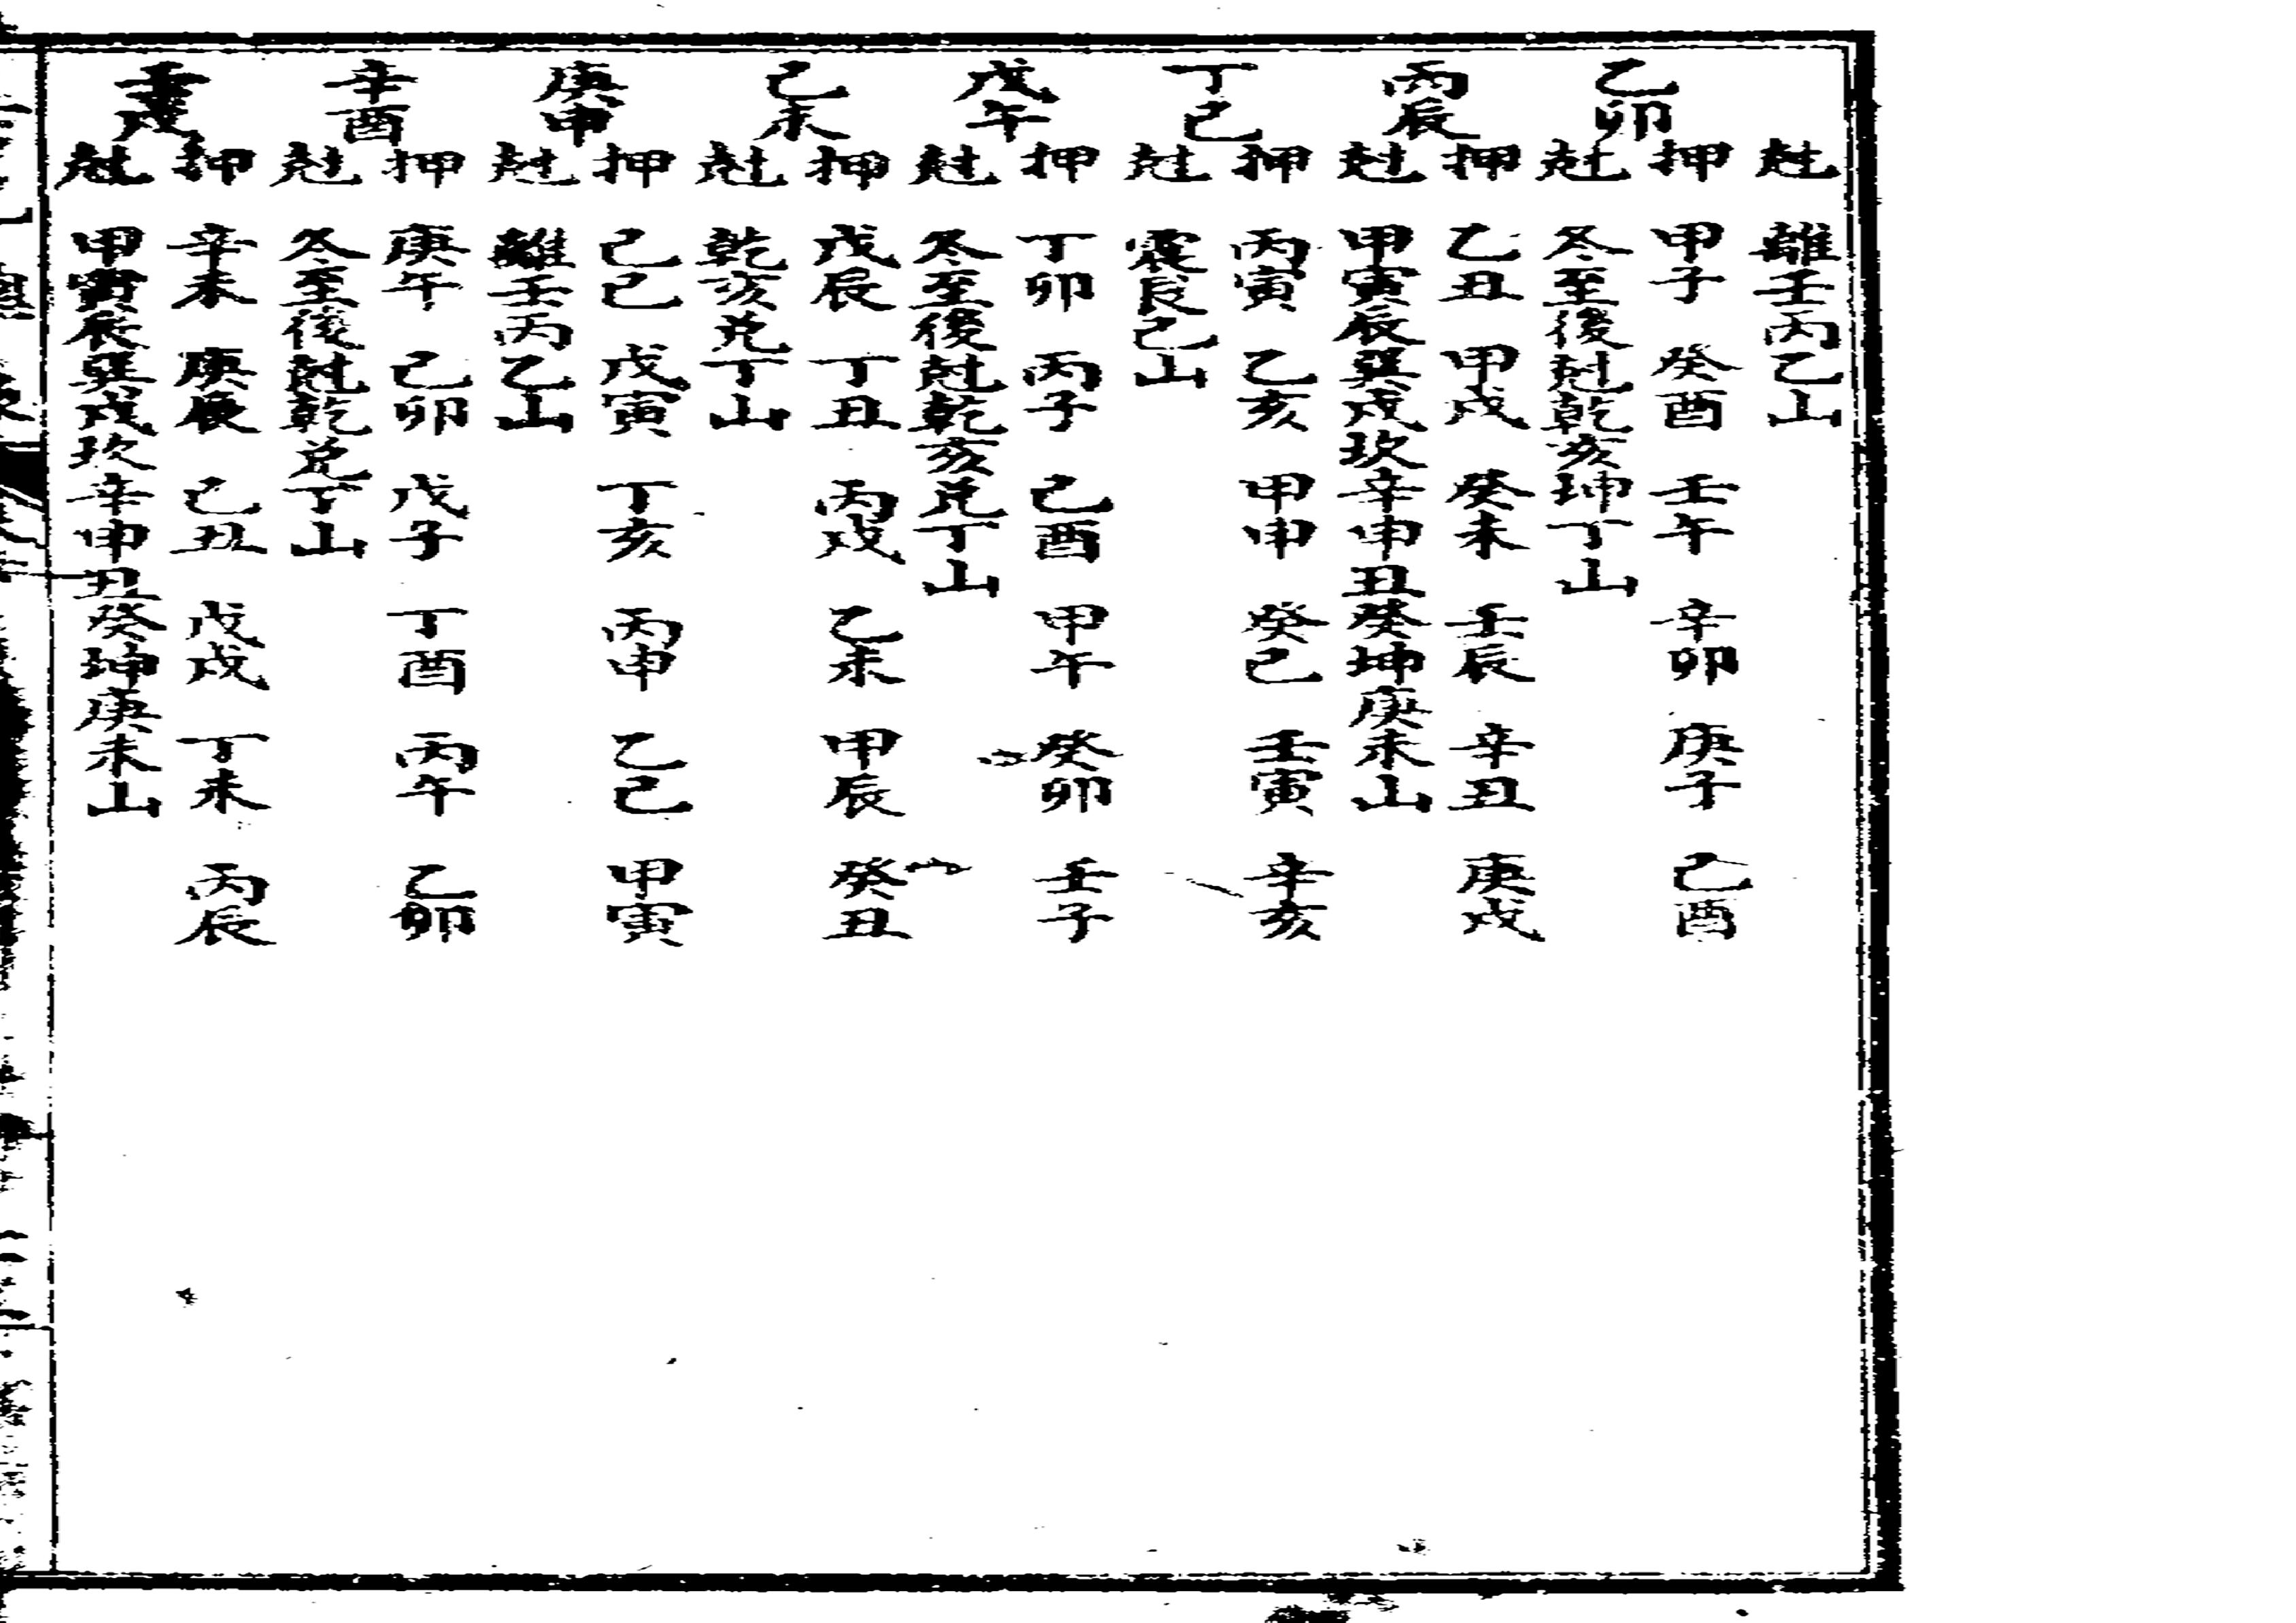 尅 離壬丙乙山
乙卯
押 甲子 癸酉 壬午 辛卯 庚子 己酉
尅 冬至後尅乾亥坤丁山
丙辰
押 乙丑 甲戌 癸未 壬辰 辛丑 庚戌
尅 甲寅辰巽戌坎辛申丑癸坤庚未山
丁巳
押 丙寅 乙亥 甲申 癸巳 壬寅 辛亥
尅 震艮巳山
戊午
押 丁卯 丙子 己酉 甲午 癸卯 壬子
尅 冬至後尅乾亥兌丁山
己未
押 戊辰 丁丑 丙戌 乙未 甲辰 癸丑
尅 乾亥兌丁山
庚申
押 己巳 戊寅 丁亥 丙申 乙巳 甲寅
尅 離壬丙乙山
辛酉
押 庚午 己卯 戊子 丁酉 丙午 乙卯
尅 冬至後尅乾兌丁山
壬戌
押 辛未 庚辰 己丑 戊戌 丁未 丙辰
尅 甲寅辰巽戌坎辛申丑癸坤庚未山